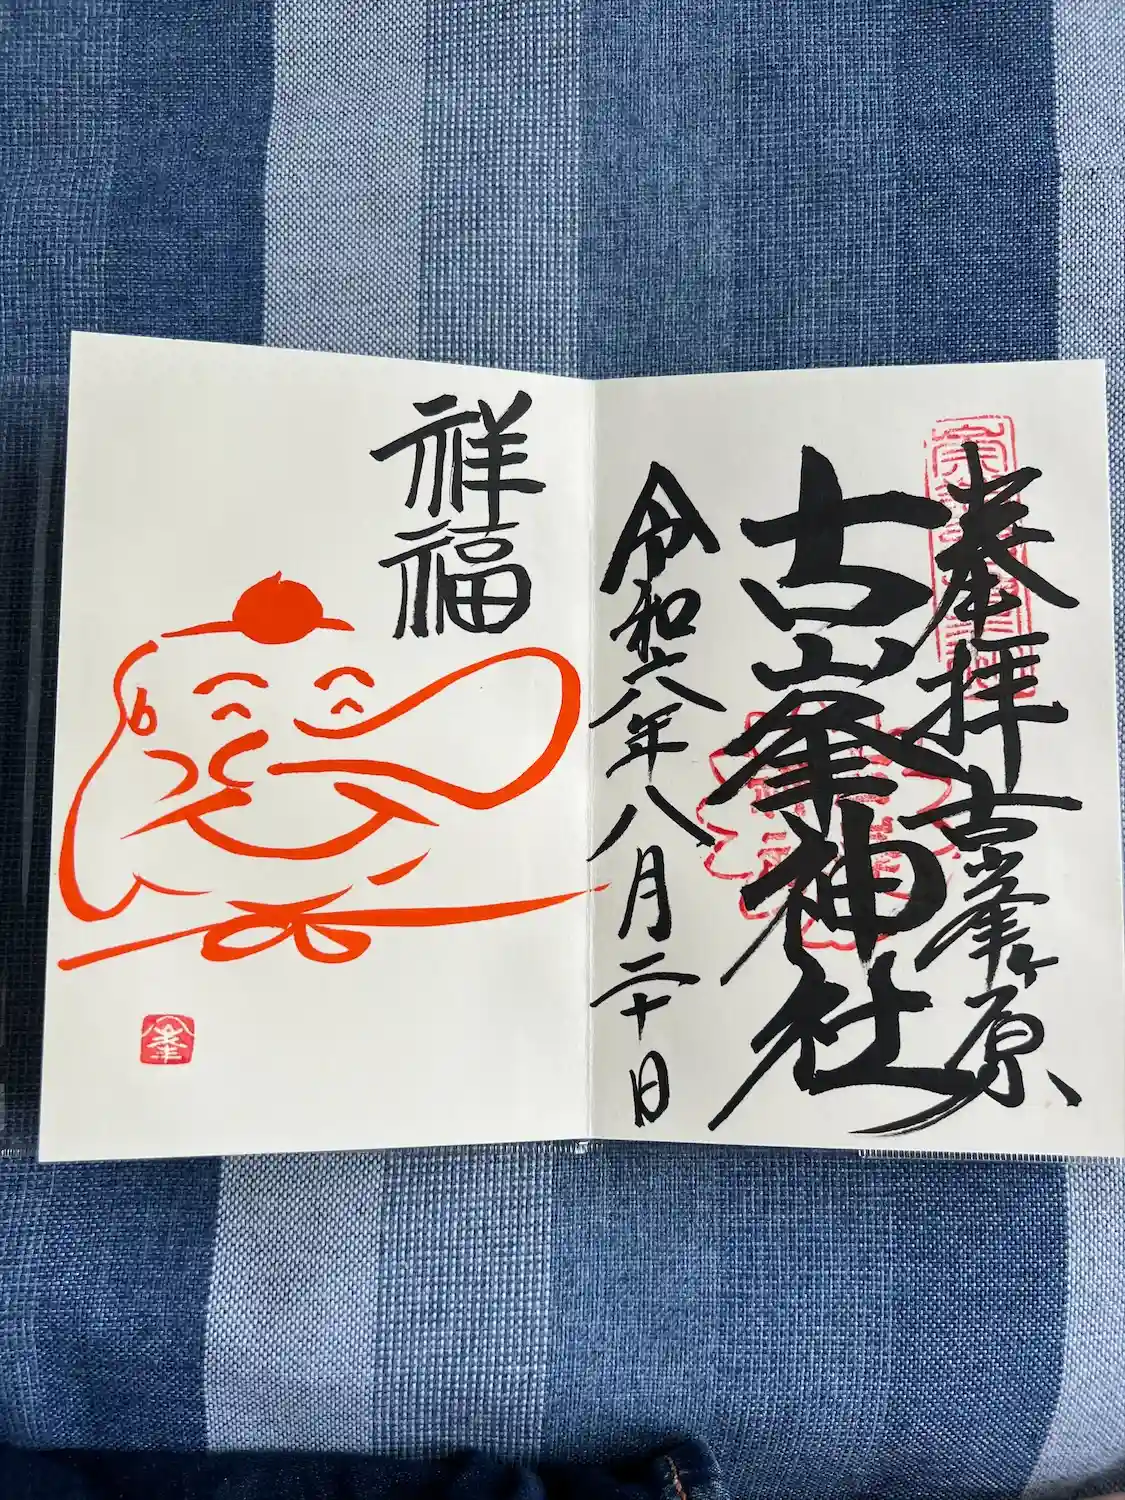 奉拝 古峯ヶ原
古峯神社
令和六年八月二十日
祥福
峯